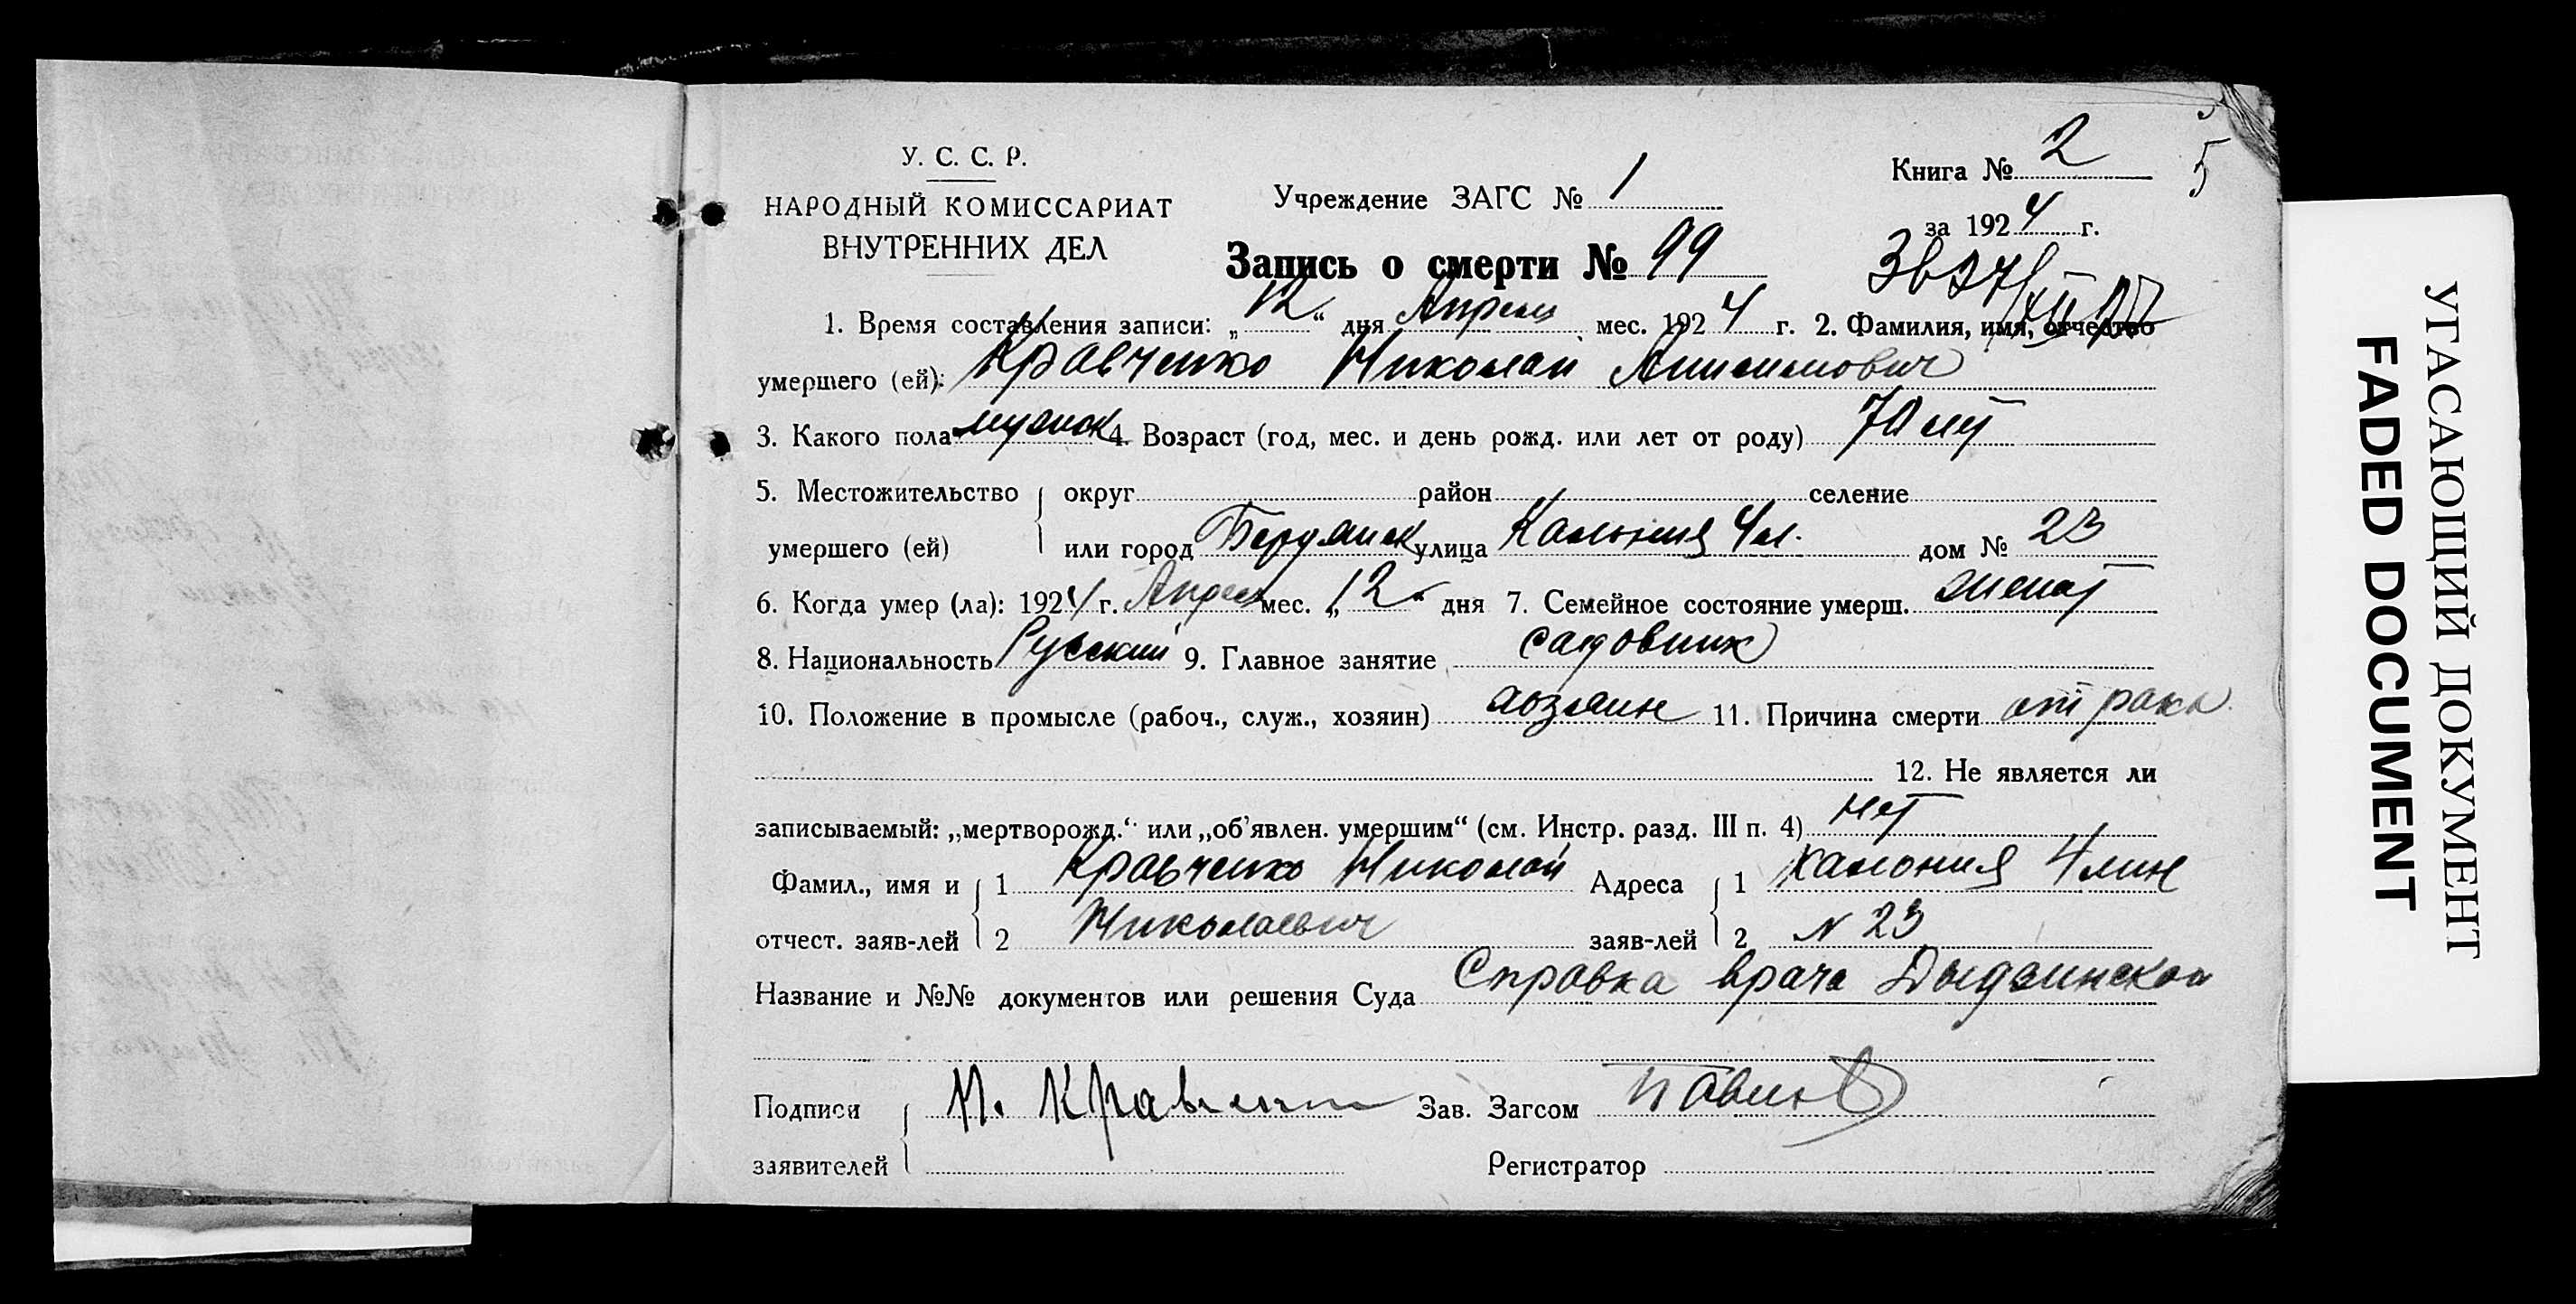 У. С. С. Р.
НАРОДНЫЙ КОМИССАРИАТ
ВНУТРЕННИХ ДЕЛ
Учреждение ЗАГС № 1
Книга № 2
5
за 1924 г.
Запись о смерти № 99
1. Время составления записи: „12“ дня Апреля мес. 1924 г. 2. Фамилия, имя, отчество
умершего (ей): Кравченко Николай
3. Какого пола мужск 4. Возраст (год, мес. и день рожд. или лет от роду) 70 лет
5. Местожительство округ район селение
умершего (ей) или город Бердянск улица Калония 4 л. дом № 23
6. Когда умер (ла): 1924 г. Апреля мес. „12“ дня 7. Семейное состояние умерш. женат
8. Национальность Русский 9. Главное занятие садовник
10. Положение в промысле (рабоч., служ., хозяин) хозяин 11. Причина смерти от рака
12. Не является ли
записываемый: „мертворожд.“ или „об'явлен. умершим“ (см. Инстр. разд. III п. 4) нет
Фамил., имя и 1 Кравченко Николай Адреса 1 Калония 4 лин
отчест. заяв-лей 2 Николаевич заяв-лей 2 N 23
Название и №№ документов или решения Суда Справка врача
Подписи Н. Кравченко Зав. Загсом
заявителей Регистратор
УГАСАЮЩИЙ ДОКУМЕНТ
FADED DOCUMENT